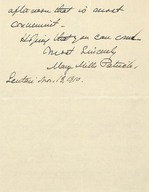 afternoon that is most
convenient –
Hoping that you can come
Most Sincerely
Mary Mills
Nov. 18 1910.